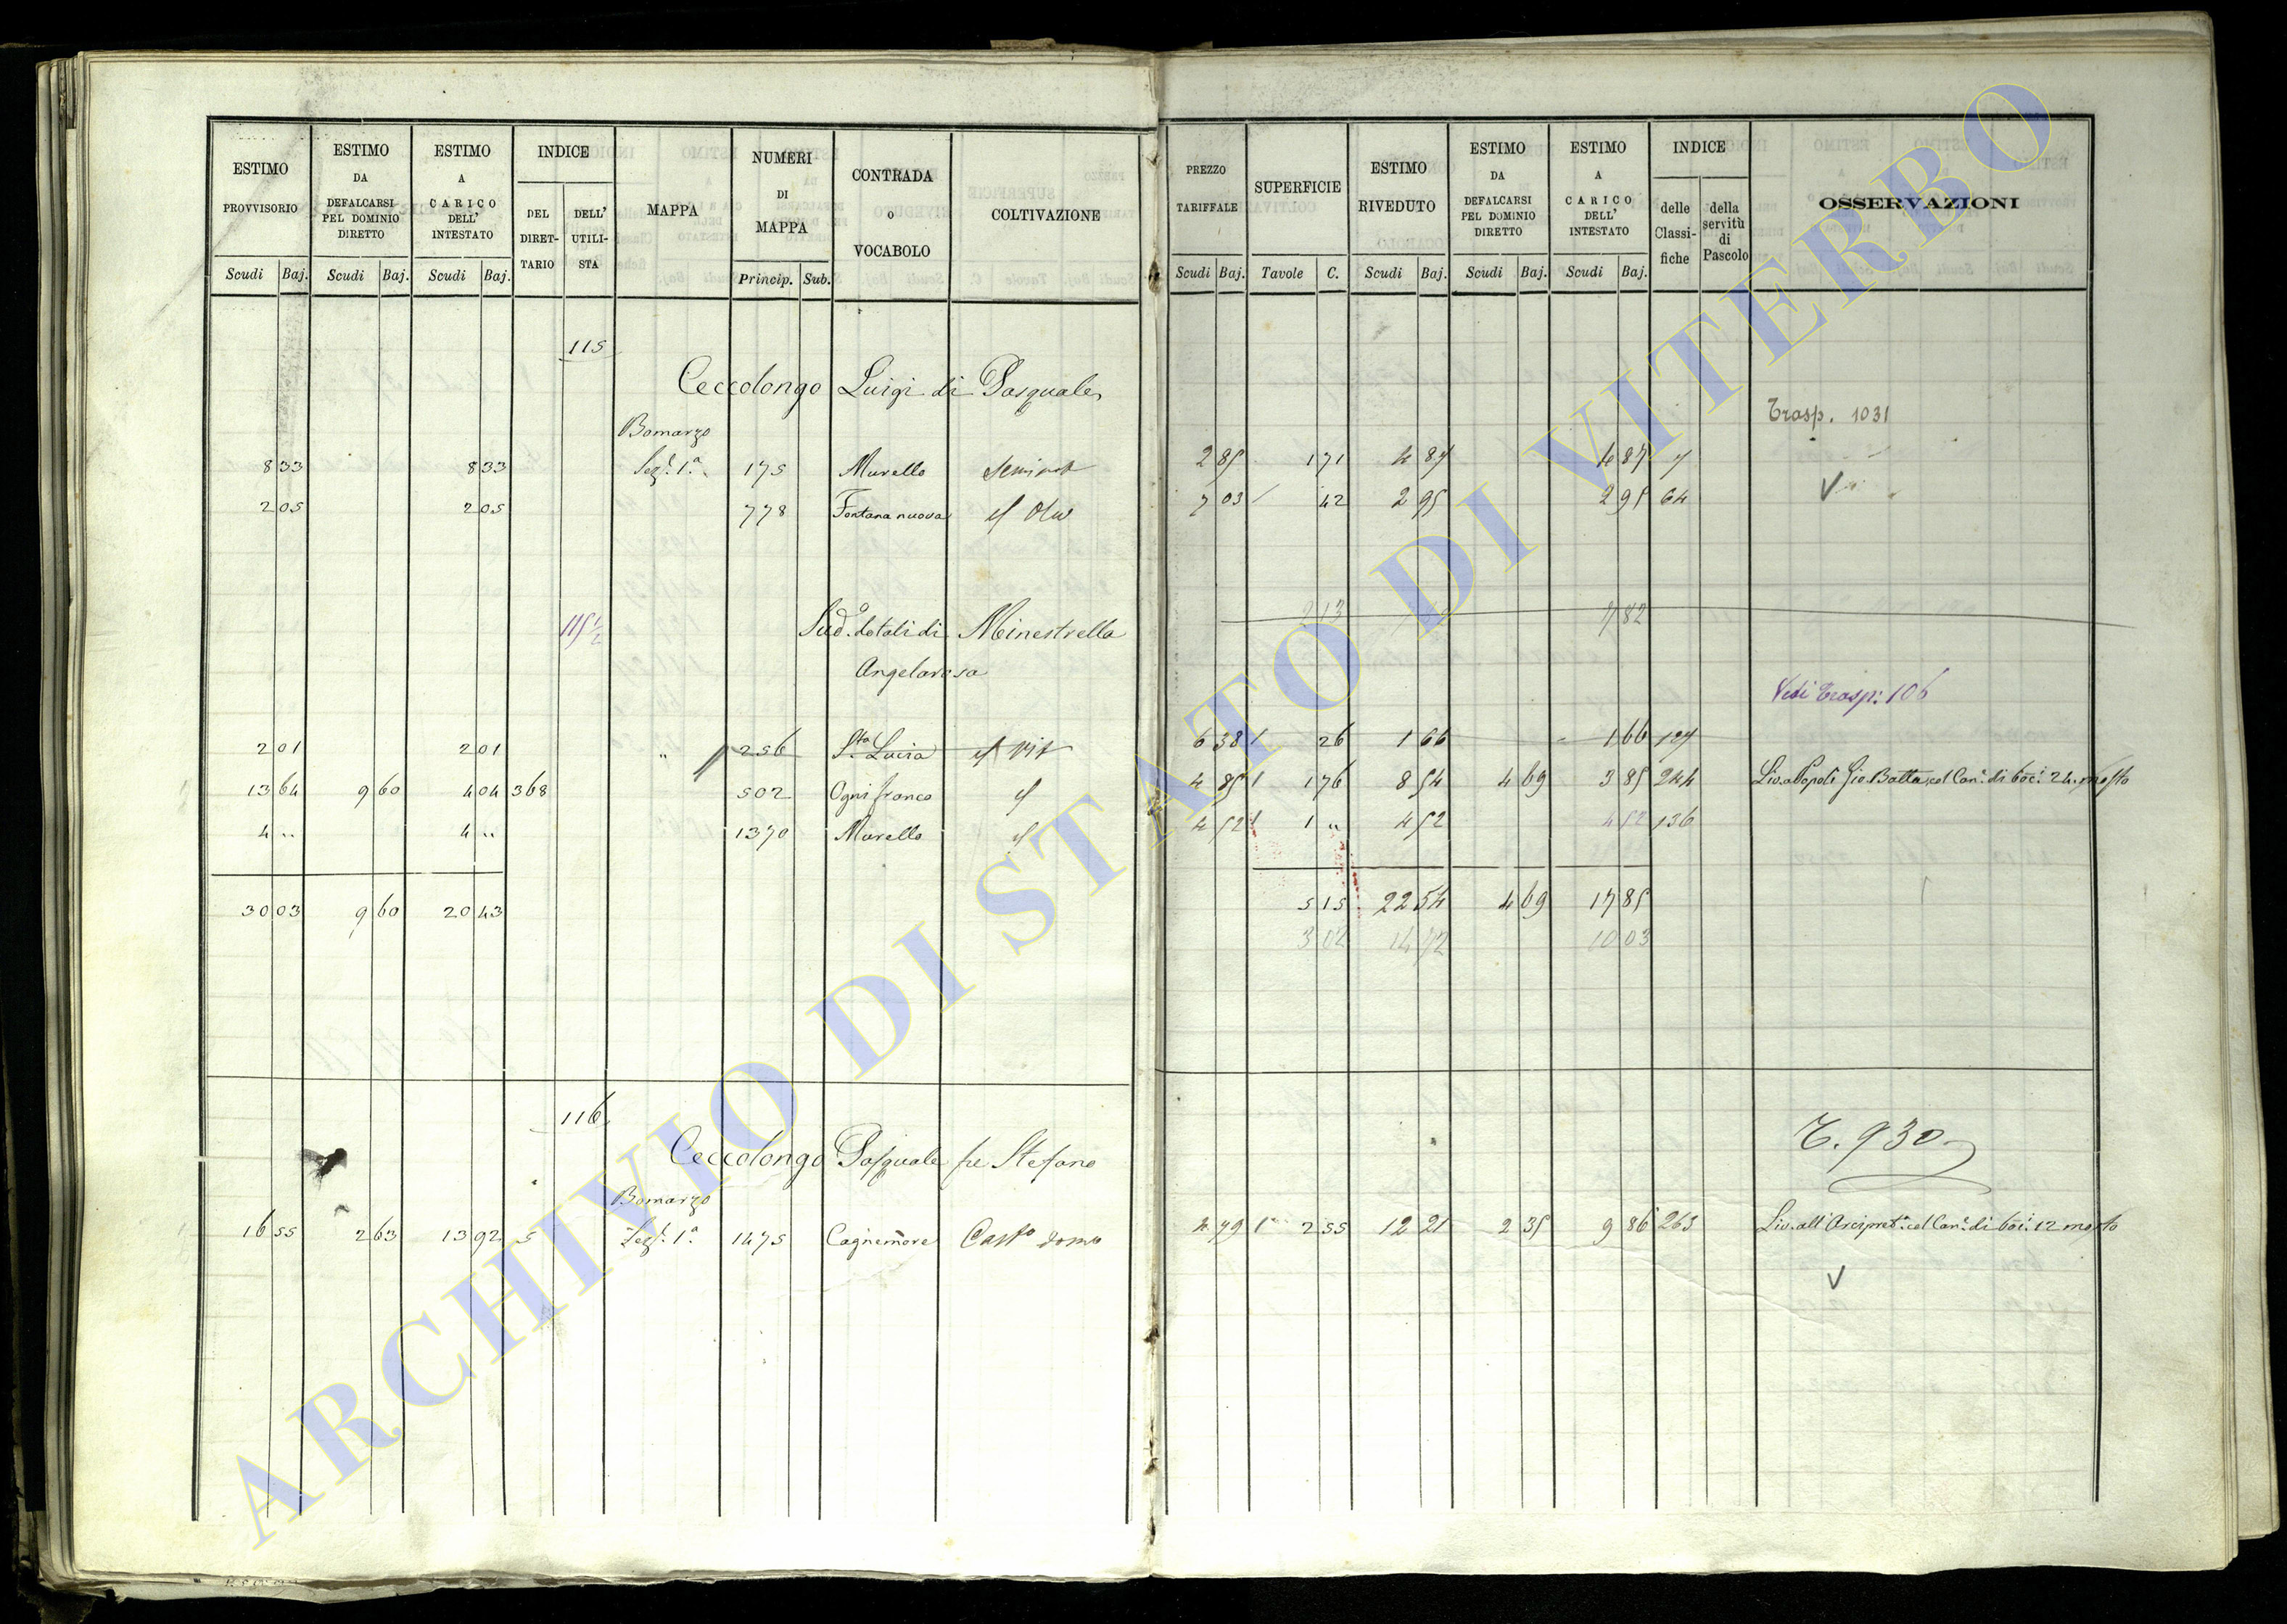 ESTIMO PROVVISORIO Scudi Baj.
ESTIMO DA DEFALCARSI PEL DOMINIO DIRETTO Scudi Baj.
ESTIMO A CARICO DELL' INTESTATO Scudi Baj.
INDICE DEL DIRET-TARIO DELL' UTILI-STA
MAPPA
NUMERI DI MAPPA Princip. Sub.
CONTRADA o VOCABOLO
COLTIVAZIONE
PREZZO TARIFFALE Scudi Baj.
SUPERFICIE Tavole C.
ESTIMO RIVEDUTO Scudi Baj.
ESTIMO DA DEFALCARSI PEL DOMINIO DIRETTO Scudi Baj.
ESTIMO A CARICO DELL' INTESTATO Scudi Baj.
INDICE delle Classi-fiche della servitù di Pascolo
OSSERVAZIONI
115
Ceccolongo Luigi di Pasquale
Trasp. 1031
Bomarzo
8 33 8 33 Sez. 1.a 175 Murello Seminat 2 85 1 71 4 87 4 87 7
2 05 2 05 778 Fontana nuova Oliv 7 03 42 2 95 2 95 64
2 13 7 82
115 1/2 Sudo. dotali di Minestrella
Angelarosa
Vedi Trasp: 106
2 01 2 01 " 256 Sta Lucia Vit 6 38 26 1 66 1 66 127
13 64 9 60 4 04 368 502 Ogni franco 4 85 1 76 8 54 4 69 3 85 244 Liv. a Popoli Gio. Batta col Can. di boc. 24. mosto
4 " 4 " 1370 Murello 4 52 1 " 4 52 4 52 136
30 03 9 60 20 43 5 15 22 54 4 69 17 85
3 02 14 72 10 03
116
Ceccolongo Pasquale fu Stefano
T. 930
Bomarzo
16 55 2 63 13 92 5 Sez. 1.a 1475 Cagnemore Casto domo 4 79 2 55 12 21 2 35 9 86 263 Liv. all' Arcipret. col Can. di boc. 12 mosto
ARCHIVIO DI STATO DI VITERBO